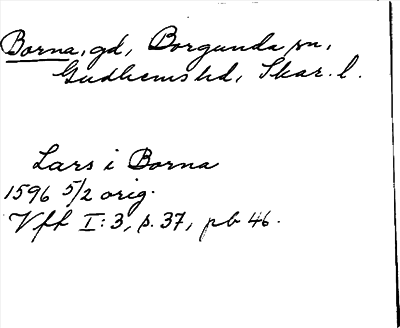 Borna, gd, Borgunda sn,
Gudhems hd, Skar. l.
Lars i Borna
1596 5/2 orig.
Vff I:3, s. 37, pb 46.